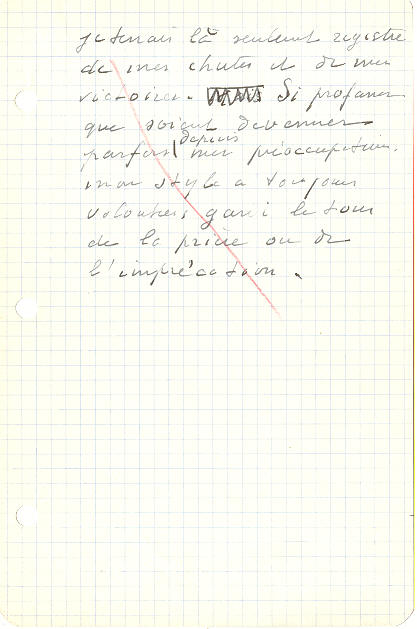 je tenais là seulement registre
de mes chutes et de mes
victoires. Si profanes
que soient devenues
depuis
parfois mes préoccupations,
mon style a toujours
volontiers gardé le tour
de la prière ou de
l'imprécation.